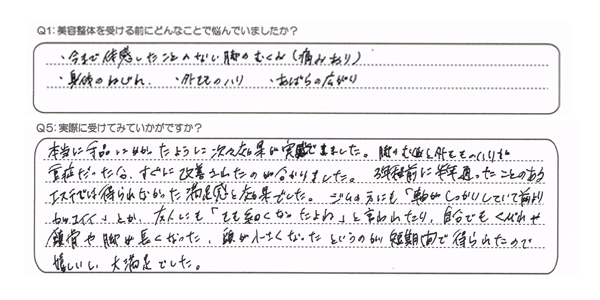 Q1：美容整体を受ける前にどんなことで悩んでいましたか？
・今まで体感したことのない脚のむくみ（痛みあり）
・身体のねじれ ・外ももの八リ ・あばらの広がり
Q5：実際に受けてみていかがですか？
本当に手品にかかったように次々効果が実感できました。脚のむくみも外ももの八リも
重症だった分、すぐに改善されたのが分かりました。3年程前に半年通ったことのある
エステでは得られなかった満足感と効果でした。ジムの方にも「軸がしっかりしていて前より
カッコイイ」とか、友人にも「もも細くなったよね」と言われたり、自分でもくびれや
鎖骨や脚が長くなった、顔が小さくなったというのが短期間で得られたので
嬉しいし、大満足でした。